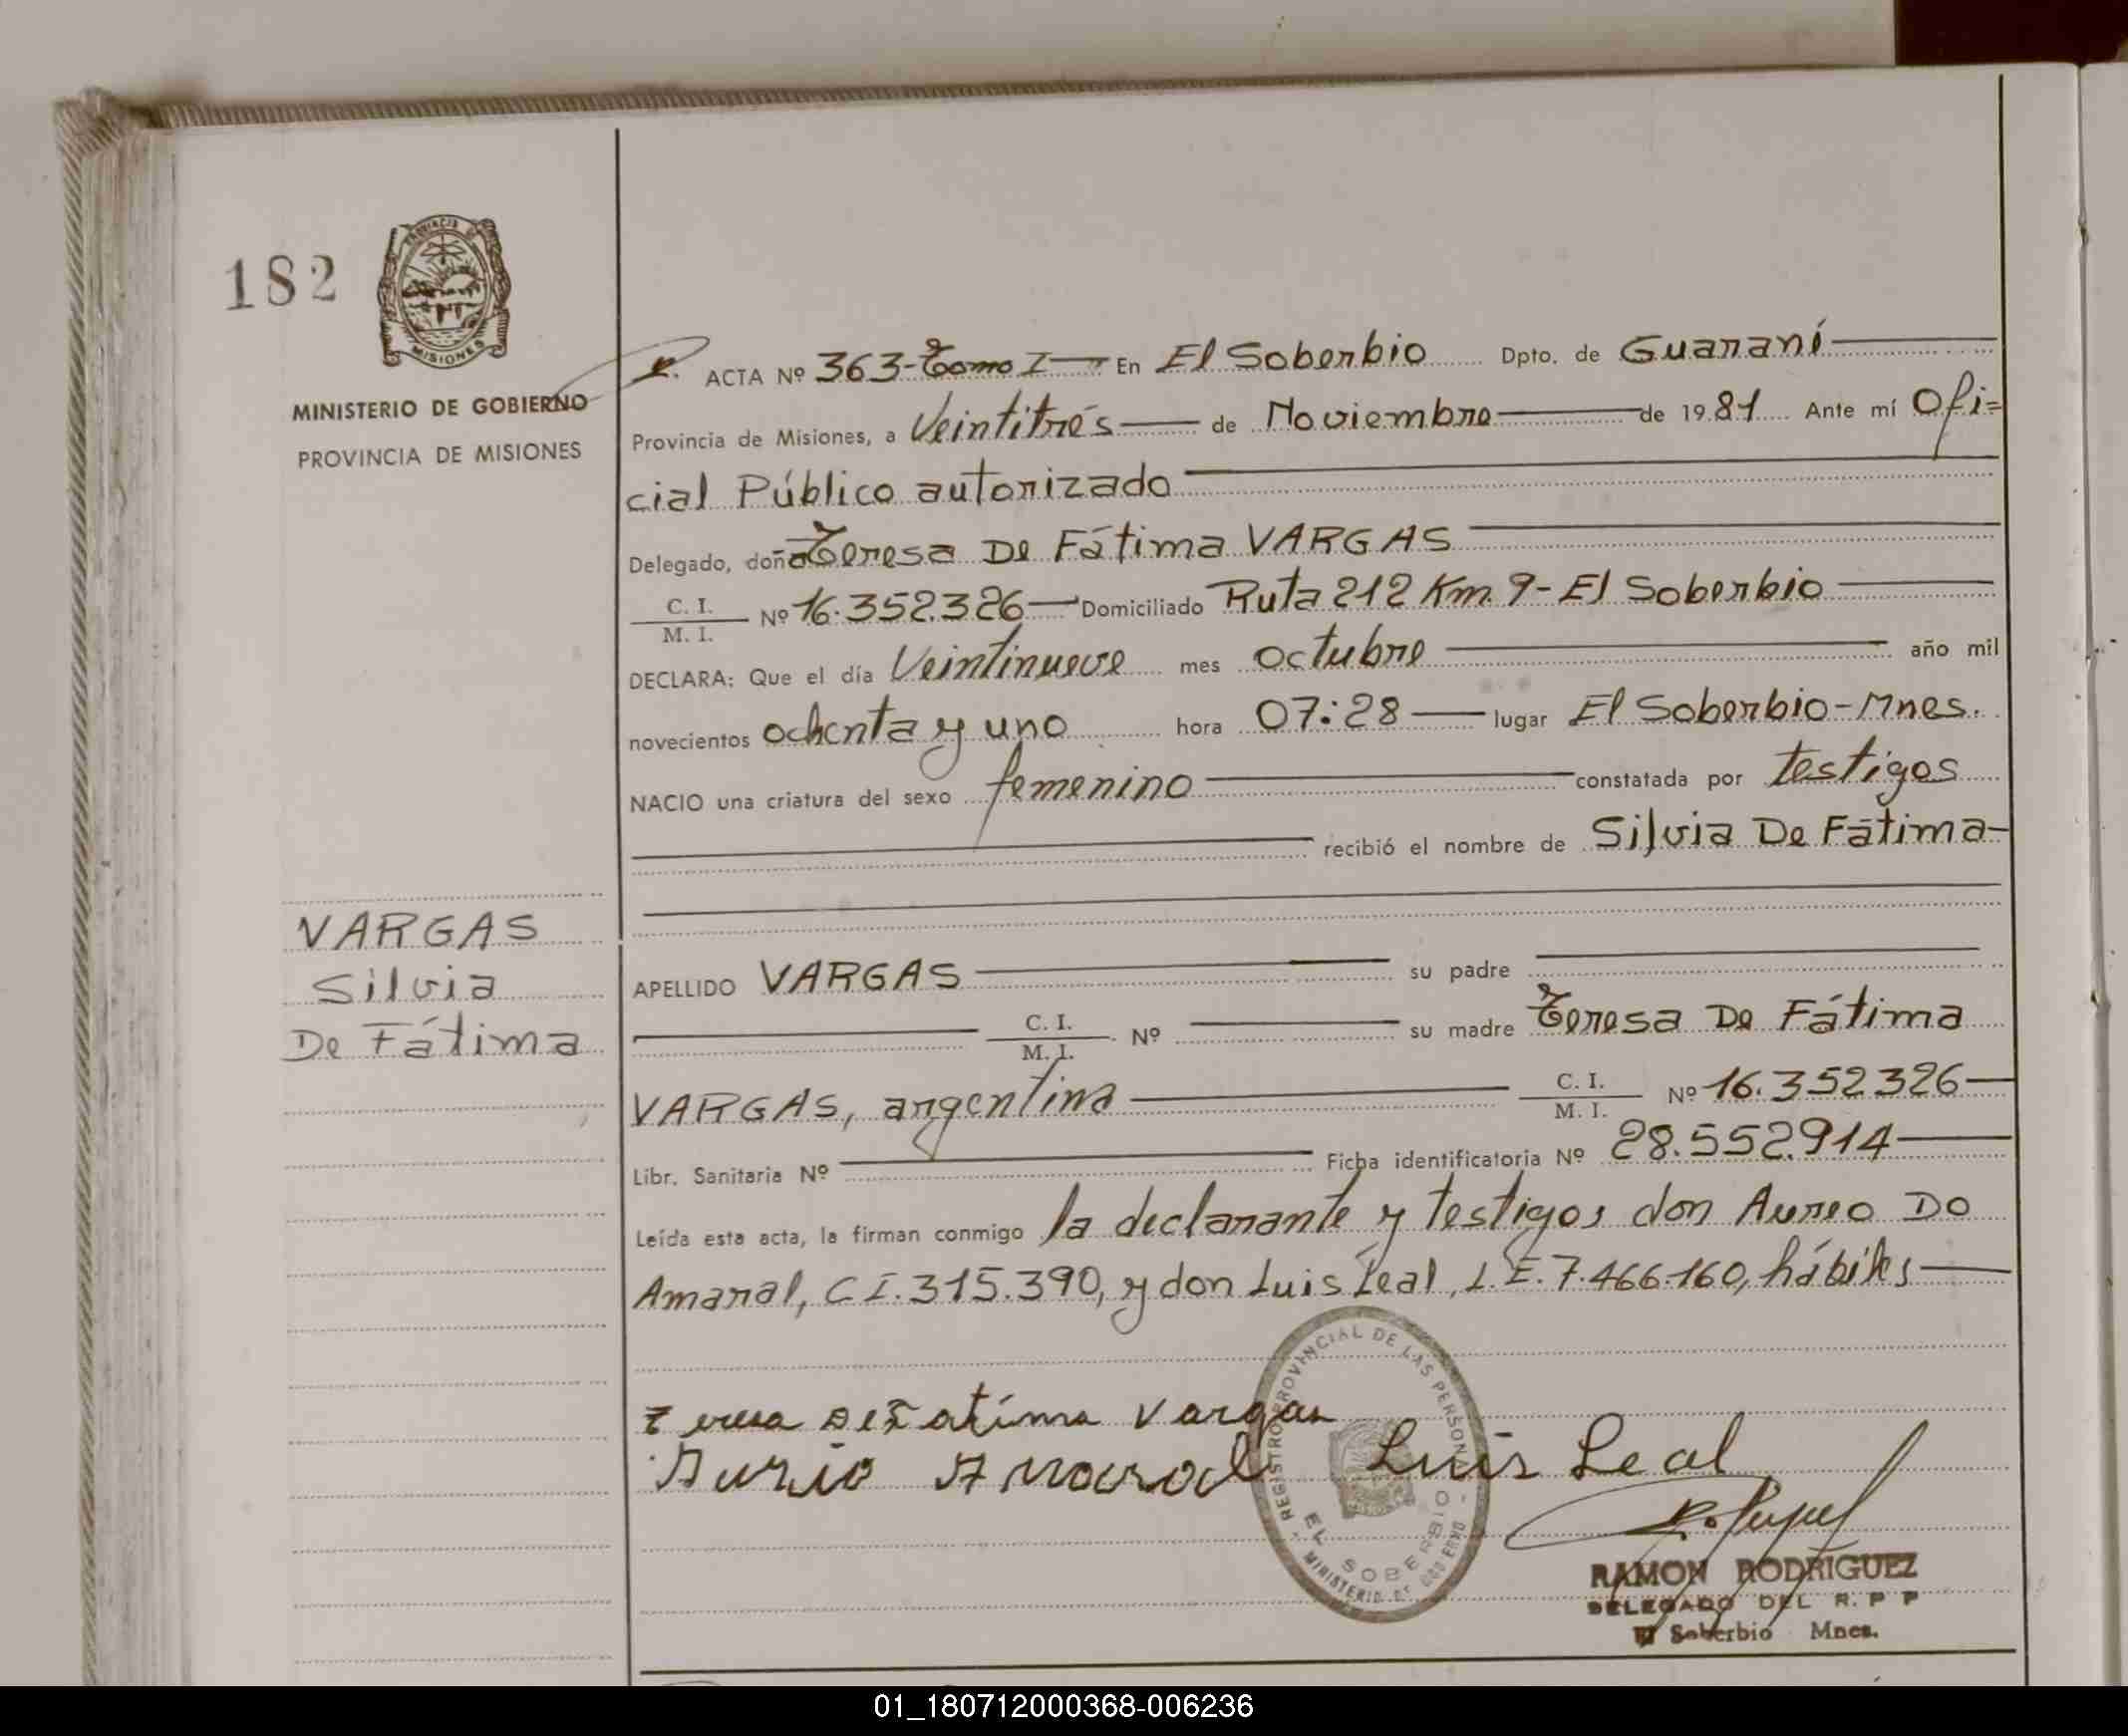 182
PROVINCIA DE
MISIONES
MINISTERIO DE GOBIERNO
PROVINCIA DE MISIONES
VARGAS
Silvia
De Fátima
ACTA Nº 363-Tomo I — En El Soberbio Dpto. de Guaraní
Provincia de Misiones, a Veintitrés de Noviembre de 1981 Ante mí Ofi=
cial Público autorizado
Delegado, doña Teresa De Fátima VARGAS
C. I. / M. I. Nº 16.352.326 — Domiciliado Ruta 212 Km. 9 - El Soberbio
DECLARA: Que el día Veintinueve mes octubre año mil
novecientos ochenta y uno hora 07:28 — lugar El Soberbio - Mnes.
NACIO una criatura del sexo femenino constatada por testigos
recibió el nombre de Silvia De Fátima-
APELLIDO VARGAS su padre
C. I. / M. I. Nº su madre Teresa De Fátima
VARGAS, argentina C. I. / M. I. Nº 16.352.326
Libr. Sanitaria Nº Ficha identificatoria Nº 28.552.914
Leída esta acta, la firman conmigo la declarante y testigos don Aureo Do
Amaral, C I. 315.390, y don Luis Leal, L. E. 7.466.160, hábiles
Teresa De Fatima Vargas
Aurio Amaral Luis Leal
REGISTRO PROVINCIAL DE LAS PERSONAS
EL SOBERBIO
MINISTERIO DE GOBIERNO
RAMON RODRIGUEZ
DELEGADO DEL R. P P
El Soberbio Mnes.
01_180712000368-006236